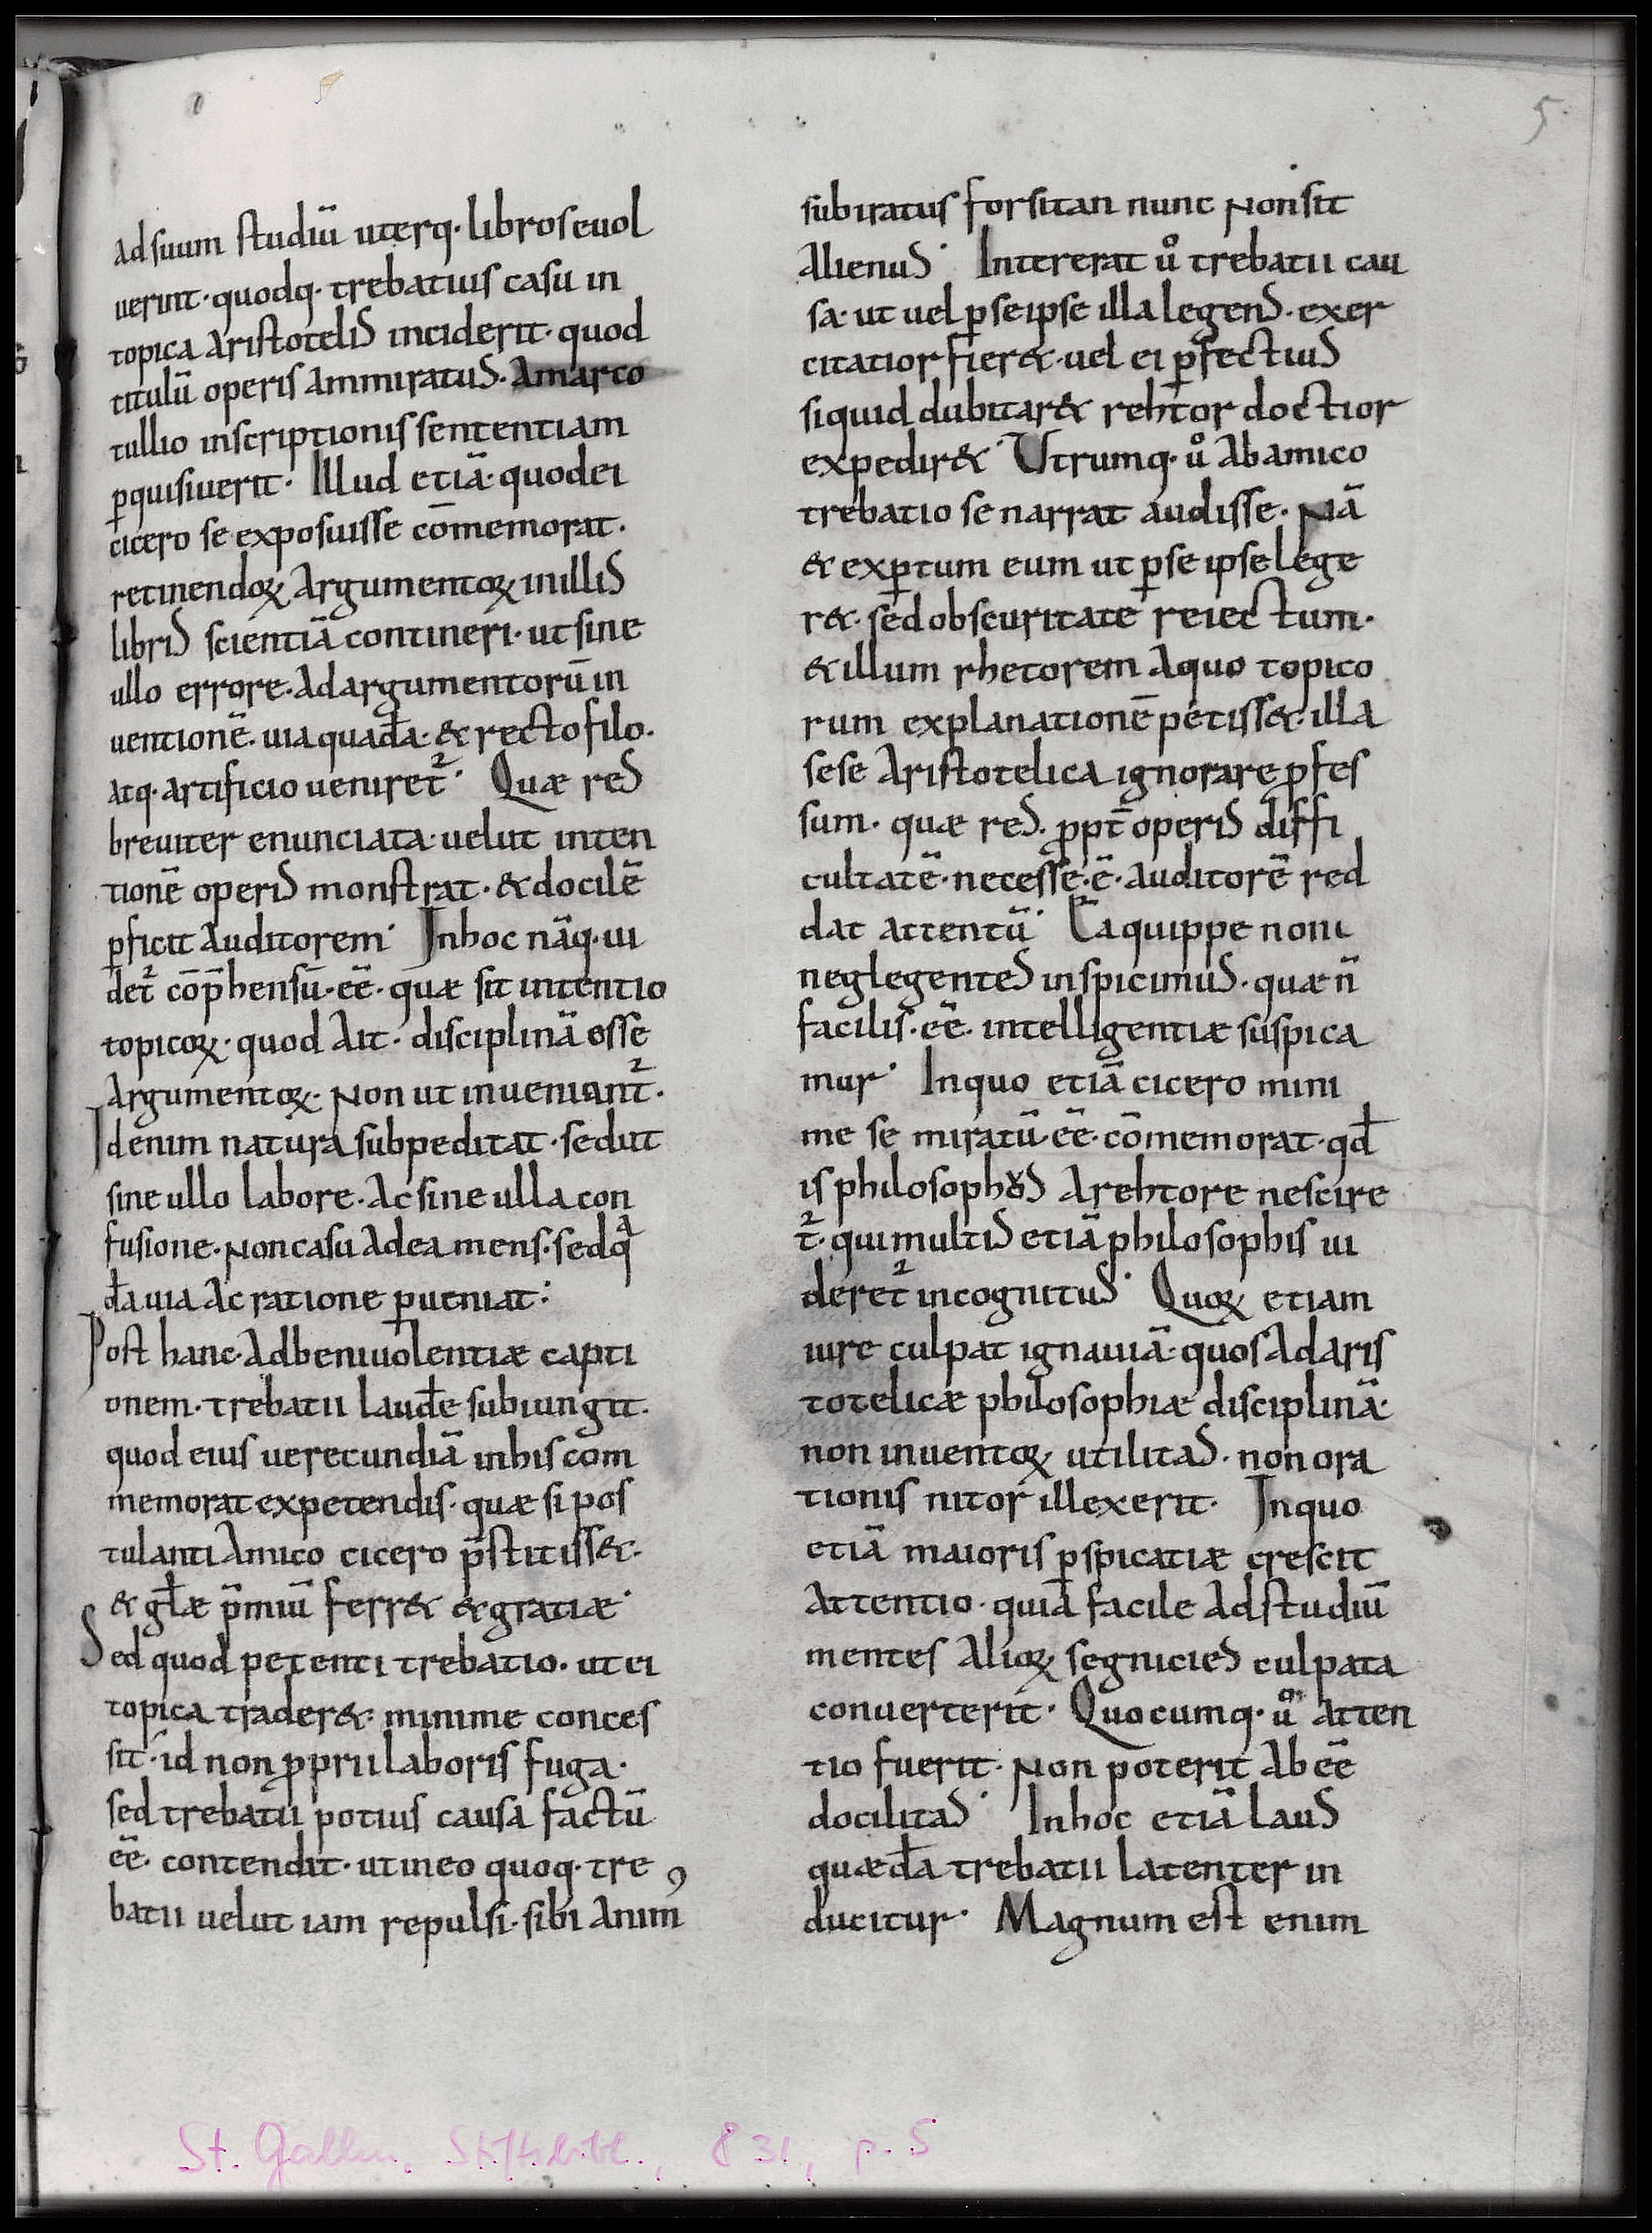 5
ad suum studiū uterq· libros euol
uerint· quodq· trebatius casu in
topica aristotelis inciderit· quod
titulū operis ammiratus· A marco
tullio inscriptionis sententiam
ꝑquisiuerit· Illud etiā· quod ei
cicero se exposuisse cōmemorat·
retinendoꝝ argumentoꝝ in illis
libris scientiā contineri· ut sine
ullo errore· ad argumentorū in
uentionē· uia quadā· & recto filo·
atq· artificio ueniret᷑· Quæ res
breuiter enunciata· uelut inten
tionē operis monstrat· & docilē
ꝑficit auditorem· In hoc nāq· ui
det᷑ cōp̄hensū· ēē· quæ sit intentio
topicoꝝ· quod ait· disciplinā esse
argumentoꝝ· Non ut inueniant᷑·
Id enim natura subpeditat· sed ut
sine ullo labore· Ac sine ulla con
fusione· Non casu ad ea mens· sed qͣ
dā uia ac ratione ꝑueniat:
Post hanc· Ad beniuolentiæ capti
onem· trebatii laudē subiungit·
quod eius uerecundiā in his com
memorat expetendis· quæ si pos
tulanti amico cicero p̄stitiss&·
& gł̄æ p̄miū ferr& & gratiæ·
Sed quod petenti trebatio· ut ei
topica trader&· minime conces
sit· id non ꝓprii laboris fuga·
sed trebatii potius causa factū
ēē· contendit· ut in eo quoq· tre
batii uelut iam repulsi· sibi animꝰ
subiratus forsitan nunc Non sit
Alienus· Intererat uͦ trebatii cau
sa· ut uel ꝑ se ipse illa legens· exer
citatior fier&· uel ei ꝑfectius
siquid dubitar& rehtor doctior
expedir&· Utrumq· uͦ ab amico
trebatio se narrat audisse· Nā
& exꝑtum eum ut ꝑ se ipse lege
r&· sed obscuritate reiectum·
& illum rhetorem a quo topico
rum explanationē petiss&· illa
sese Aristotelica ignorare ꝓfes
sum· quæ res· ꝓpt̄ operis diffi
cultatē· necesse· ē· auditorē red
dat attentū· Ea quippe non
neglegentes inspicimus· quæ n̄
facilis· ēē· intelligentiæ suspica
mur· In quo etiā cicero mini
me se miratū· ēē· cōmemorat· qd̄
is philosophus A rehtore nescire
t᷑· qui multis etiā philosophis ui
deret᷑ incognitus· Quoꝝ etiam
iure culpat ignauiā· quos ad aris
totelicæ philosophiæ disciplinā·
non inuentoꝝ utilitas· non ora
tionis nitor illexerit· In quo
etiā maioris ꝑspicatiæ crescit
Attentio· quia facile ad studiū
mentes alioꝝ segnicies culpata
conuerterit· Quocumq· uͦ atten
tio fuerit· Non poterit ab ēē
docilitas· In hoc etiā laus
quædā trebatii latenter in
ducitur· Magnum est enim
St. Gallen, Stiftsbibl., 831, p. 5